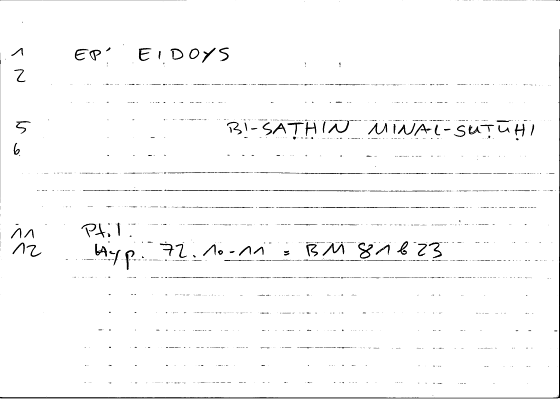 1 EP' EIDOYS
2
5 BI-SAṬHIN MINAL-SUṬŪḤI
6
11 Ptl.
12 Hyp. 72.10-11 = BM 81b23